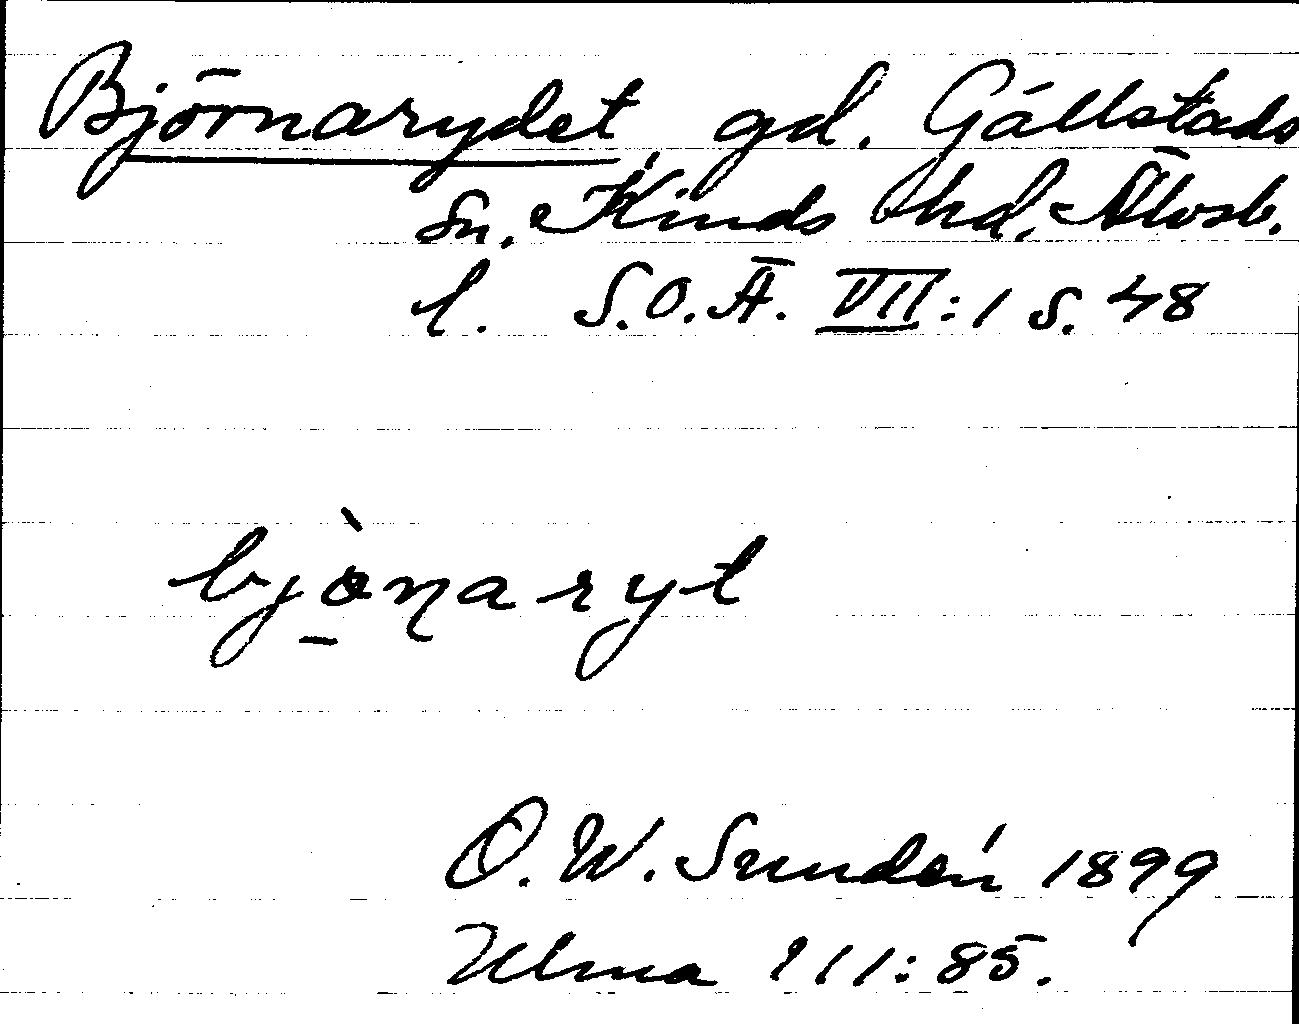 Björnarydet, gd. Gällstads
sn. Kinds hd. Älvsb.
l. S.O.Ä. VII:1 S. 48
bjò̱ɳaryt
O. W. Sundén 1899
Ulma 111:85.